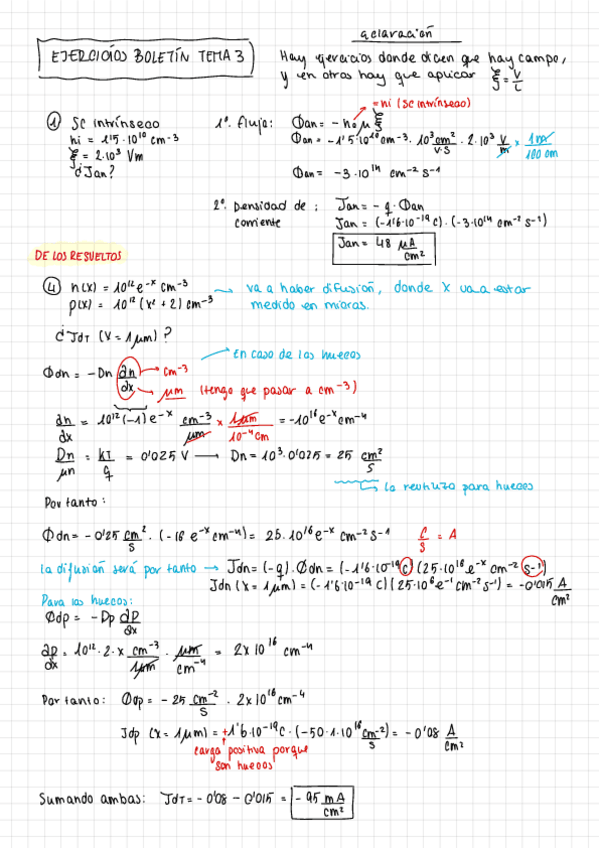 EJERCICIOS BOLETÍN TEMA 3
aclaración
Hay ejercicios donde dicen que hay campo,
y en otros hay que aplicar ξ = V/L
① SC intrínseco
ni = 1'5·10¹⁰ cm-3
ξ = 2·10³ Vm
¿Jan?
1º. Flujo: Φan = - n₀ μ ξ
= ni (SC intrínseco)
Φan = -1'5·10¹⁰ cm-3 · 10³ cm²/V·S · 2·10³ V/m × 1m/100 cm
Φan = -3·10¹⁴ cm-2 s-1
2º. Densidad de corriente : Jan = -q · Φan
Jan = (-1'6·10-19 C) · (-3·10¹⁴ cm-2 s-1)
Jan = 48 μA/cm²
DE LOS RESUELTOS
④ n(x) = 10¹² e-x cm-3
p(x) = 10¹² (x² + 2) cm-3
va a haber difusión, donde X va a estar
medido en micras.
¿JdT (V = 1μm) ?
en caso de los huecos
Φdn = -Dn dn/dx
cm-3
μm (tengo que pasar a cm-3)
dn/dx = 10¹² (-1) e-x cm-3/μm × 1μm/10-4 cm = -10¹⁶ e-x cm-4
Dn/μn = kT/q = 0'025 V → Dn = 10³ · 0'025 = 25 cm²/s
lo reutilizo para huecos
Por tanto:
Φdn = -0'25 cm²/s · (-16 e-x cm-4) = 25·10¹⁶ e-x cm-2 s-1
C/S = A
la difusión será por tanto → Jdn = (-q) · Φdn = (-1'6·10-19 C) (25·10¹⁶ e-x cm-2 s-1)
Jdn (x = 1μm) = (-1'6·10-19 C) (25·10⁶ e-1 cm-2 s-1) = -0'015 A/cm²
Para los huecos:
Φdp = -Dp dp/dx
dp/dx = 10¹² · 2 · x cm-3/1μm · μm/cm-4 = 2x10¹⁶ cm-4
Por tanto: Φdp = -25 cm-2/s · 2x10¹⁶ cm-4
Jdp (x = 1μm) = +1'6·10-19 C · (-50·1·10¹⁶ cm-2/s) = -0'08 A/cm²
carga positiva porque
son huecos
Sumando ambas: JdT = -0'08 - 0'015 = -95 mA/cm²